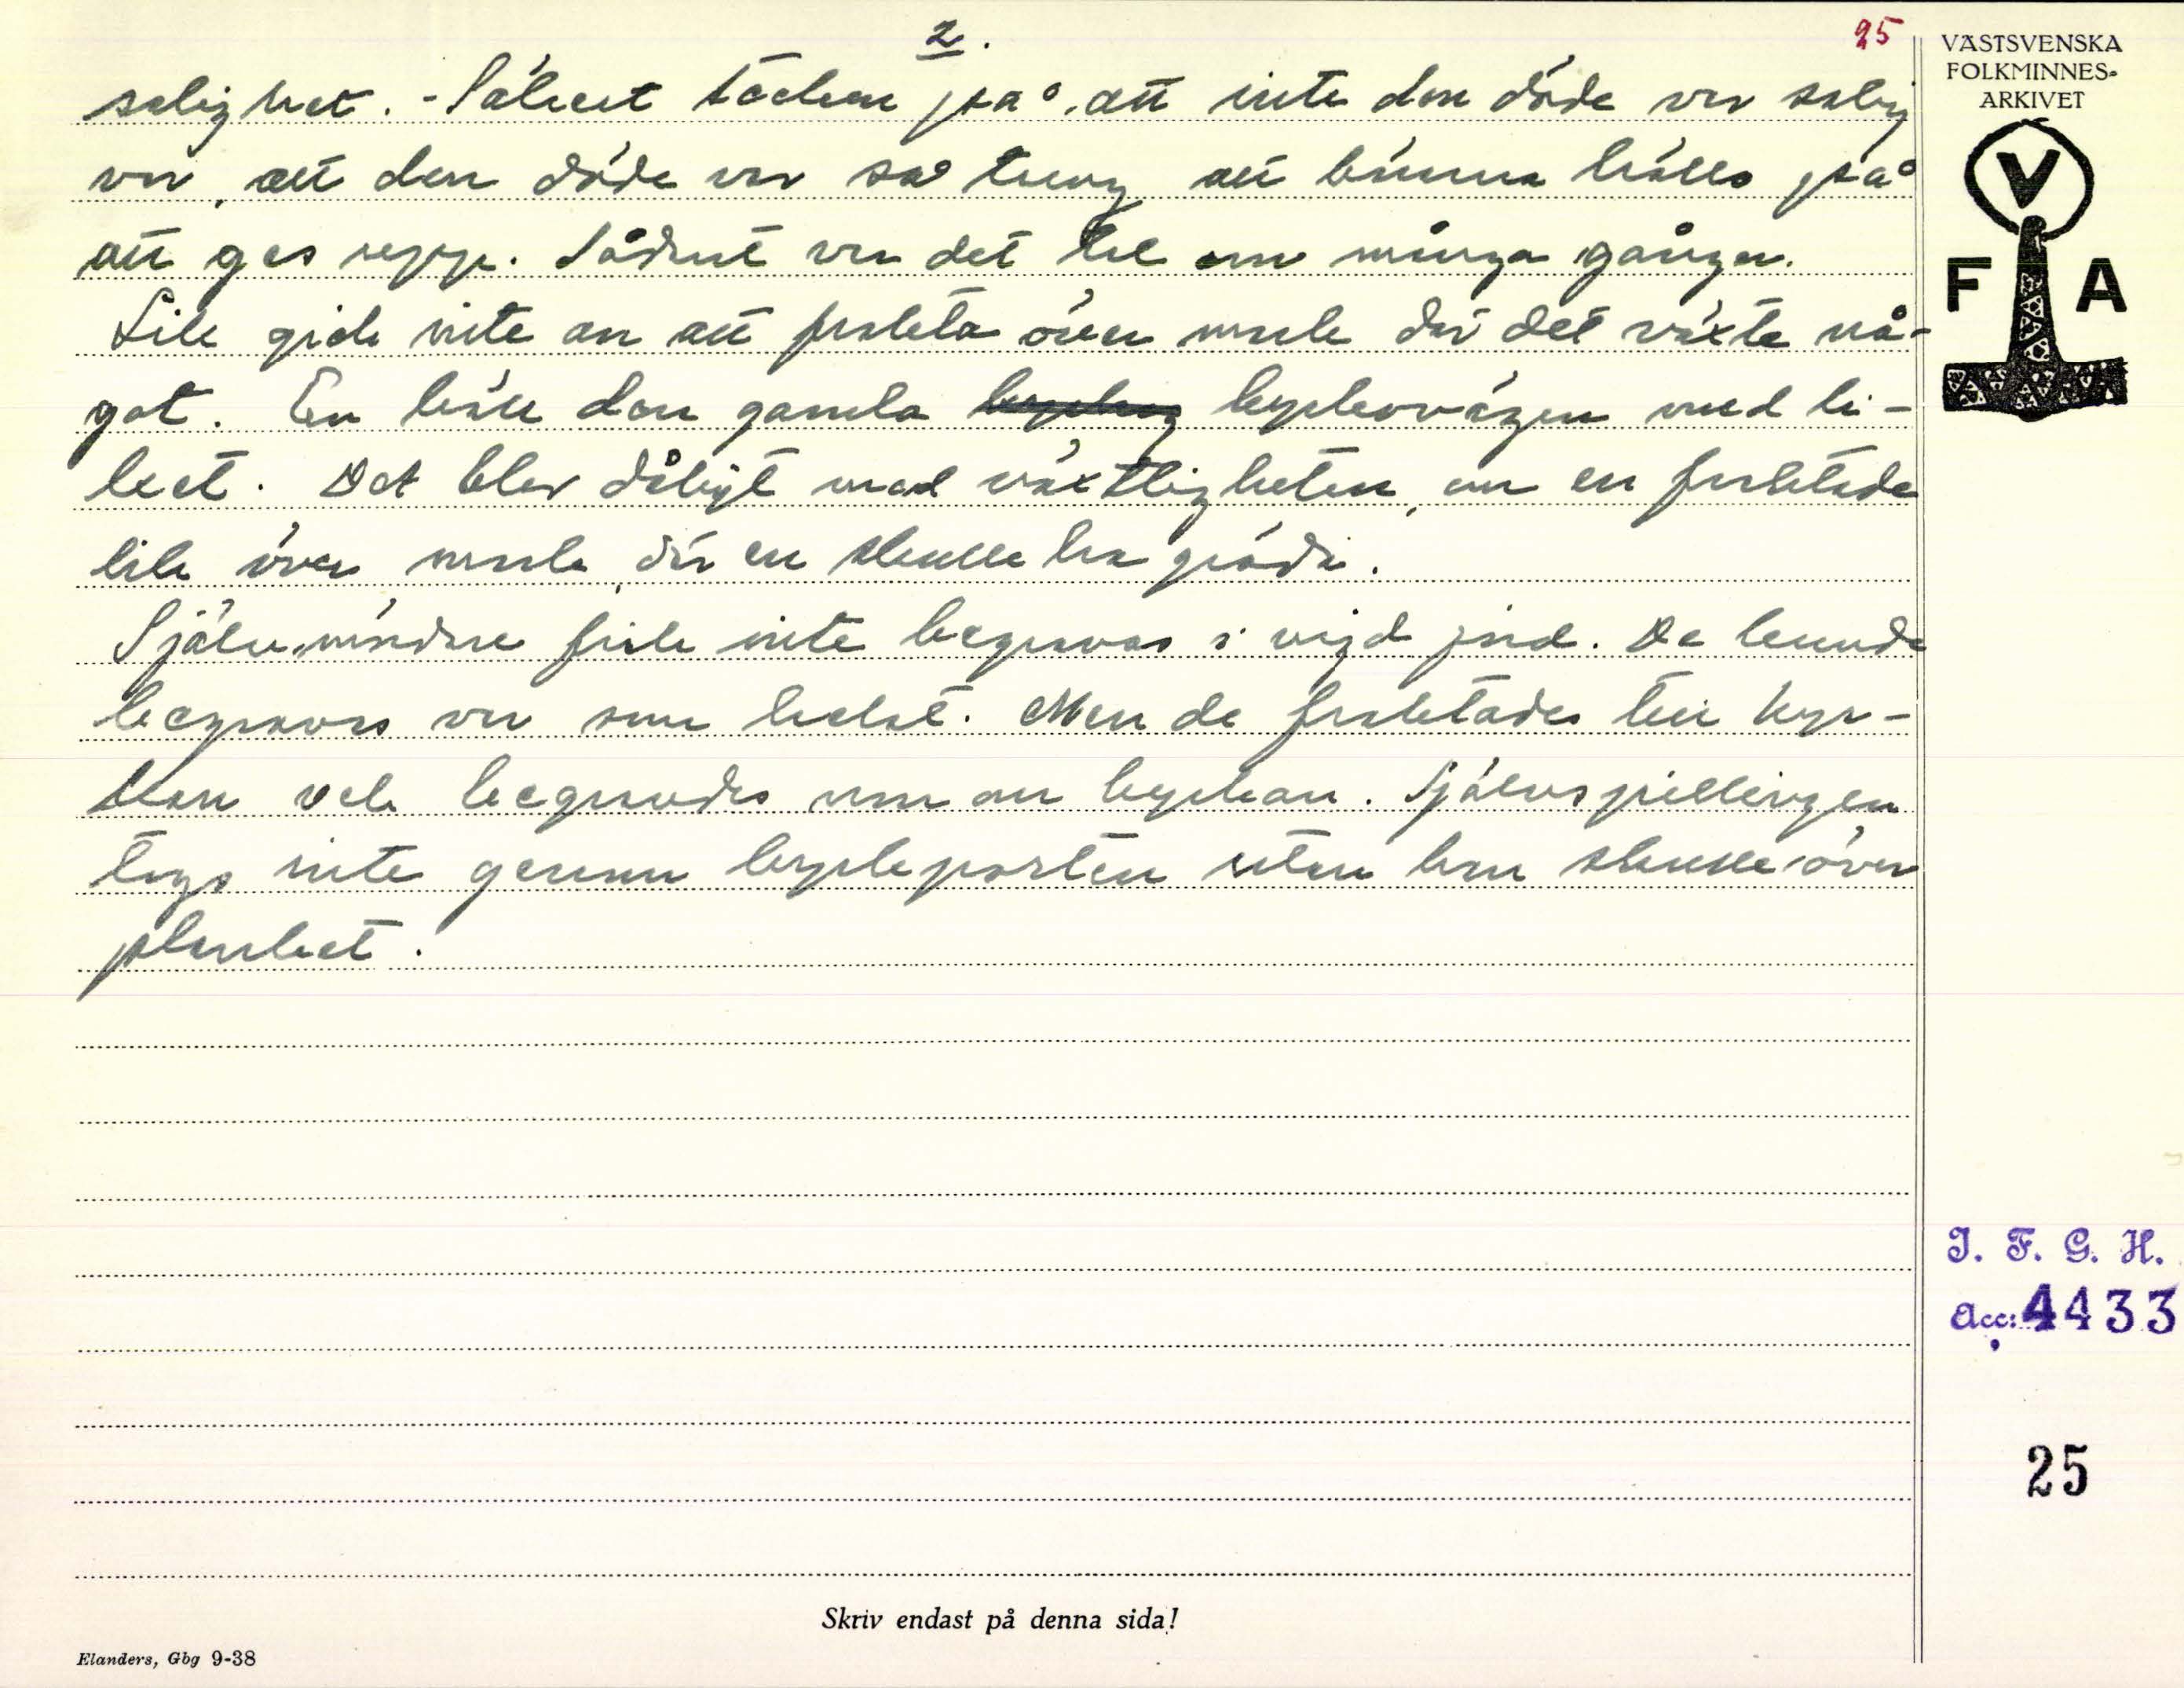 2.
25
salighet. - Säkert tecken på, att inte den döde var salig
var, att den döde var så tung att hästarna höllo på
att ges upp. Sådant var det tal om många gånger.
Lik gick inte an att frakta över mark där det växte nå-
got. En höll den gamla kyrkovägen med li-
ket. Det blev dåligt med växtligheten, om en fraktade
lik över mark, där en skulle ha gröda.
Självmördare fick inte begravas i vigd jord. De kunde
begravas var som helst. Men de fraktades till kyr-
kan och begravdes norr om kyrkan. Självspillingen
togs inte genom kyrkporten utan han skulle över
planket.
VÄSTSVENSKA
FOLKMINNES-
ARKIVET
V
F A
I. F. G. H.
Acc: 4433
25
Skriv endast på denna sida!
Elanders, Gbg 9-38